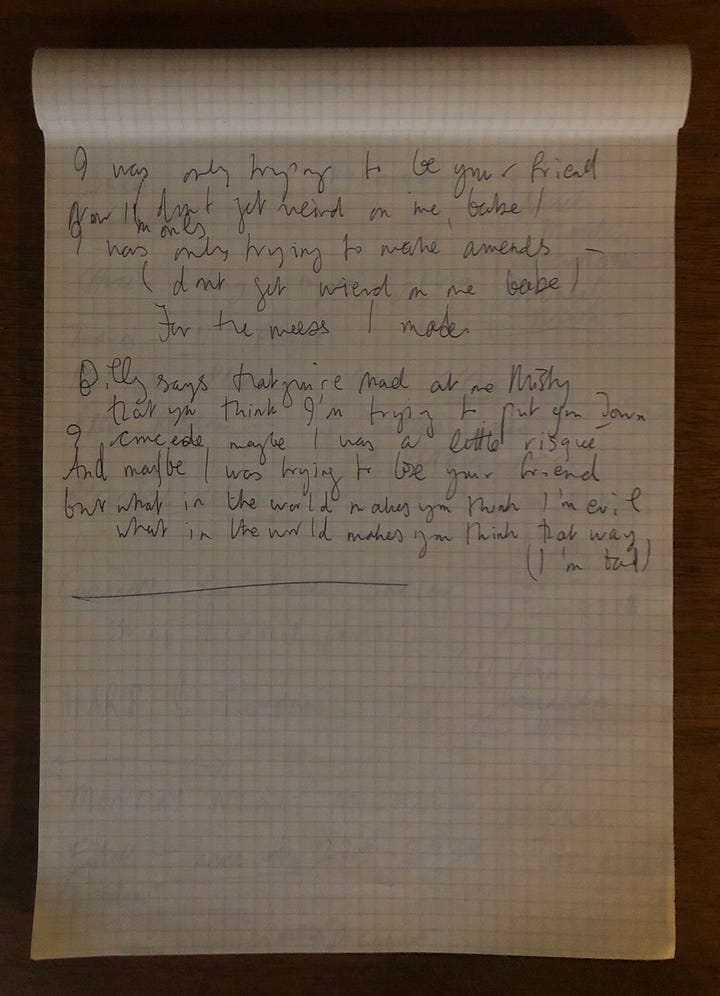 I was only trying to be your friend
Now I'm only
(dont get weird on me, babe)
I was only trying to make amends –
(dnt get wierd on me babe)
For the mess I made.
Billy says that you're mad at me Misty
that you think I'm trying to put you Down
I concede maybe I was a little risque
And maybe I was trying to lose your friend
but what in the world makes you think I'm evil
what in the world makes you think that way
(I'm bad)